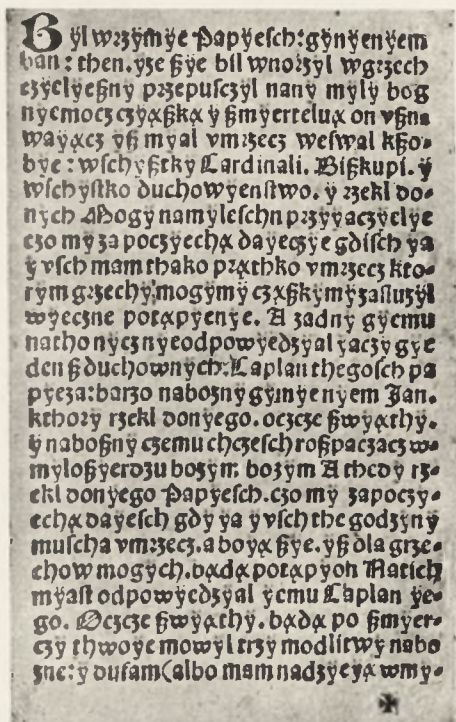 Był wrzÿmÿe Papÿesch: gÿnÿenÿem
ban: then. ÿze ßÿe bil wnozÿl wgrzech
czÿelÿeßnÿ przepusczÿl nanÿ mÿlÿ bog
nÿemocz czÿąßką ÿ ßmÿertelną on vßna
waÿącz ÿß mÿal vmrzecz weswal kßo⸗
bÿe: wschÿßtkÿ Cardinali. Bißkupi. ÿ
wschÿstko duchowÿenstwo. ÿ rzekl do⸗
nÿch Mogÿ namÿleschn przÿÿaczÿelÿe
czo mÿ za poczÿechą daÿeczÿe gdisch ÿa
ÿ vsch mam thako prąthko vmrzecz kto⸗
rÿm grzechÿ mogÿmÿ cząßkÿmÿ zasluzÿl
wÿeczne potąpÿenÿe. A zadnÿ gÿemu
nathonÿcz nÿeodpowÿedzÿal ÿaczÿ gÿe
den ß duchownÿch. Caplan thegosch pa
pÿeza: barzo naboznÿ gÿmÿenÿem Jan.
kthorÿ rzekl donÿego. oczcze ßwÿąthÿ.
ÿ naboßnÿ czemu chczesch roßpaczacz w⸗
mÿloßÿerdzu bozÿm bozÿm A thedÿ rz⸗
ekl donÿego Papÿesch. czo mÿ zapoczÿ⸗
echą daÿesch gdÿ ÿa ÿ vsch the godzÿnÿ
muscha vmrzecz. a boÿą ßÿe. ÿß dla grze⸗
chow mogÿch. bądą potąpÿon Natich
mÿast odpowÿedzÿal ÿemu Caplan ÿe⸗
go. Oczcze ßwÿąthÿ. bądą po ßmÿer⸗
czÿ thwoÿe mowÿl trzÿ modlitwÿ nabo
zne: ÿ dufam (albo mam nadzÿeÿą wmÿ⸗